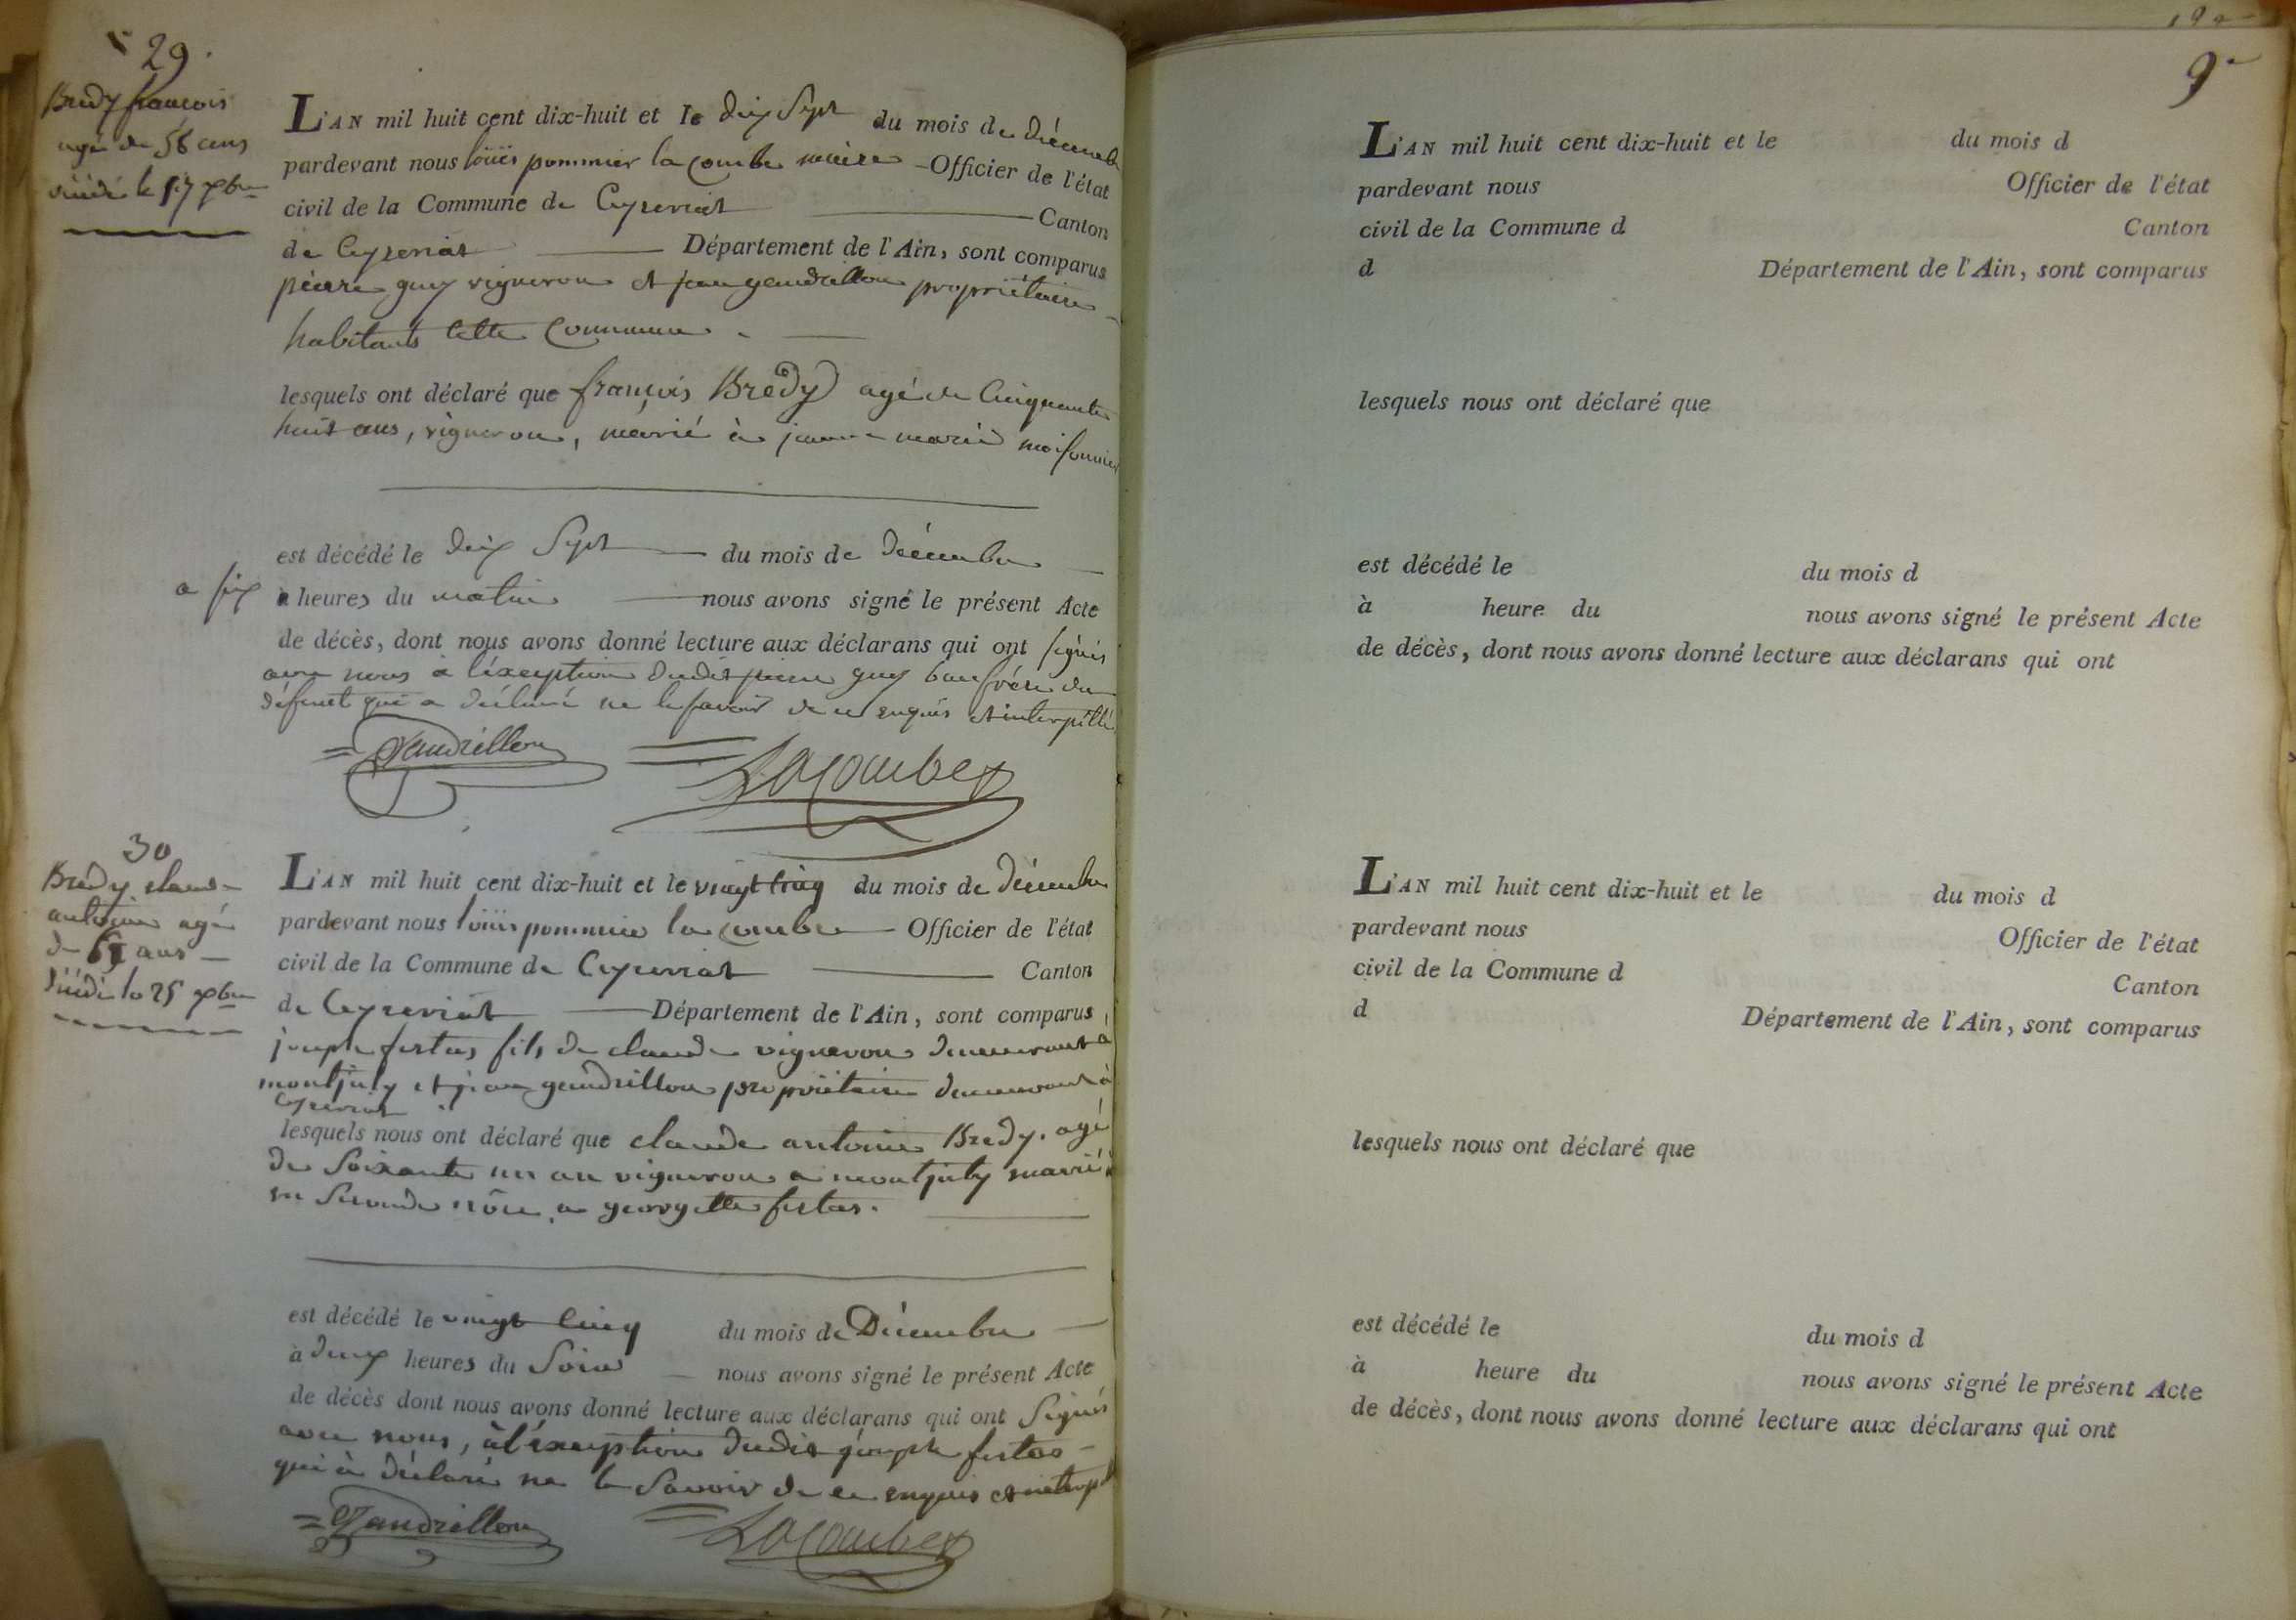 29.
Bredy françois
agé de 58 ans
décédé le 17 xbre
L'AN mil huit cent dix-huit et le dix Sept du mois de décembre
pardevant nous loüis pommier la combe maire Officier de l'état
civil de la Commune de Ceyzeriat Canton
de Ceyzeriat Département de l'Ain, sont comparus
pierre guy vigneron et jean gandrillon propriétaire
habitants cette Commune.
lesquels ont déclaré que françois Bredy agé de Cinquante
huit ans, vigneron, marié à jeanne marie moisonnier
est décédé le dix Sept du mois de décembre
a six à heures du matin nous avons signé le présent Acte
de décès, dont nous avons donné lecture aux déclarans qui ont signés
avec nous à l'éxception dudit pierre guy beaufrére du
défunt qui a déclaré ne le savoir de ce enquis et interpellé
= Gandrillon = LACombe
30
Bredy claude
antoine agé
de 61 ans
décédé le 25 xbre
L'AN mil huit cent dix-huit et le vingt cinq du mois de décembre
pardevant nous loüis pommier la combe Officier de l'état
civil de la Commune de Ceyzeriat Canton
de Ceyzeriat Département de l'Ain, sont comparus
joseph festas fils de claude vigneron demeurant à
montjuly et jean gandrillon propriétaire demeurant à
Ceyzeriat
lesquels nous ont déclaré que claude antoine Bredy. agé
de Soixante un an vigneron a montjuly marié
en Seconde nôce a georgette festas.
est décédé le vingt Cinq du mois de Décembre
à deux heures du Soir nous avons signé le présent Acte
de décès dont nous avons donné lecture aux déclarans qui ont Signés
avec nous, à l'éxception dudit joseph festas
qui à déclaré ne le Savoir de ce enquis et interpé
= Gandrillon = LACombe
9
L'AN mil huit cent dix-huit et le du mois d
pardevant nous Officier de l'état
civil de la Commune d Canton
d Département de l'Ain, sont comparus
lesquels nous ont déclaré que
est décédé le du mois d
à heure du nous avons signé le présent Acte
de décès, dont nous avons donné lecture aux déclarans qui ont
L'AN mil huit cent dix-huit et le du mois d
pardevant nous Officier de l'état
civil de la Commune d Canton
d Département de l'Ain, sont comparus
lesquels nous ont déclaré que
est décédé le du mois d
à heure du nous avons signé le présent Acte
de décès, dont nous avons donné lecture aux déclarans qui ont